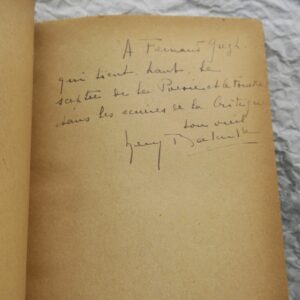 A Fernand Gregh
qui tient haut le
sceptre de la Poésie et la
dans les de la Critique
son vieil
Henry